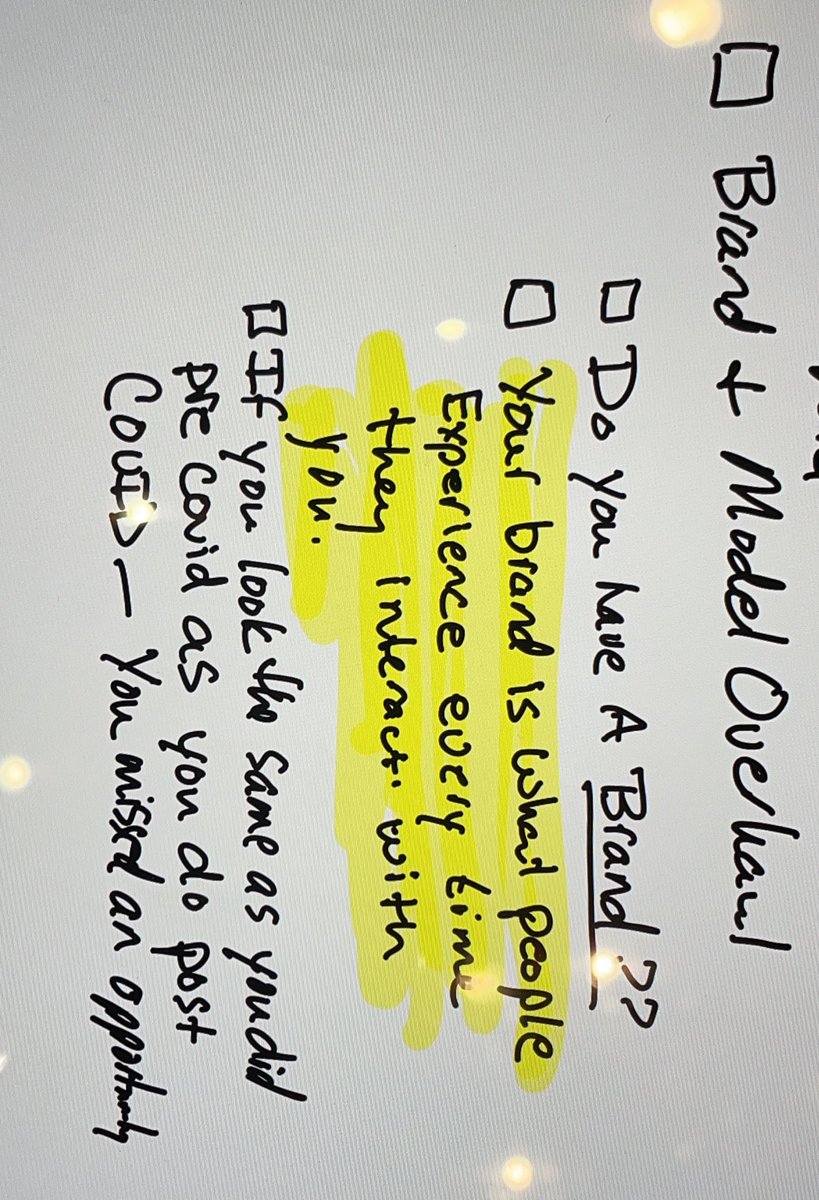 Brand + Model Overhaul
Do you have A Brand??
Your brand is what people
Experience every time
they interact with
you.
If you look the same as you did
pre covid as you do post
COVID — You missed an opportunity